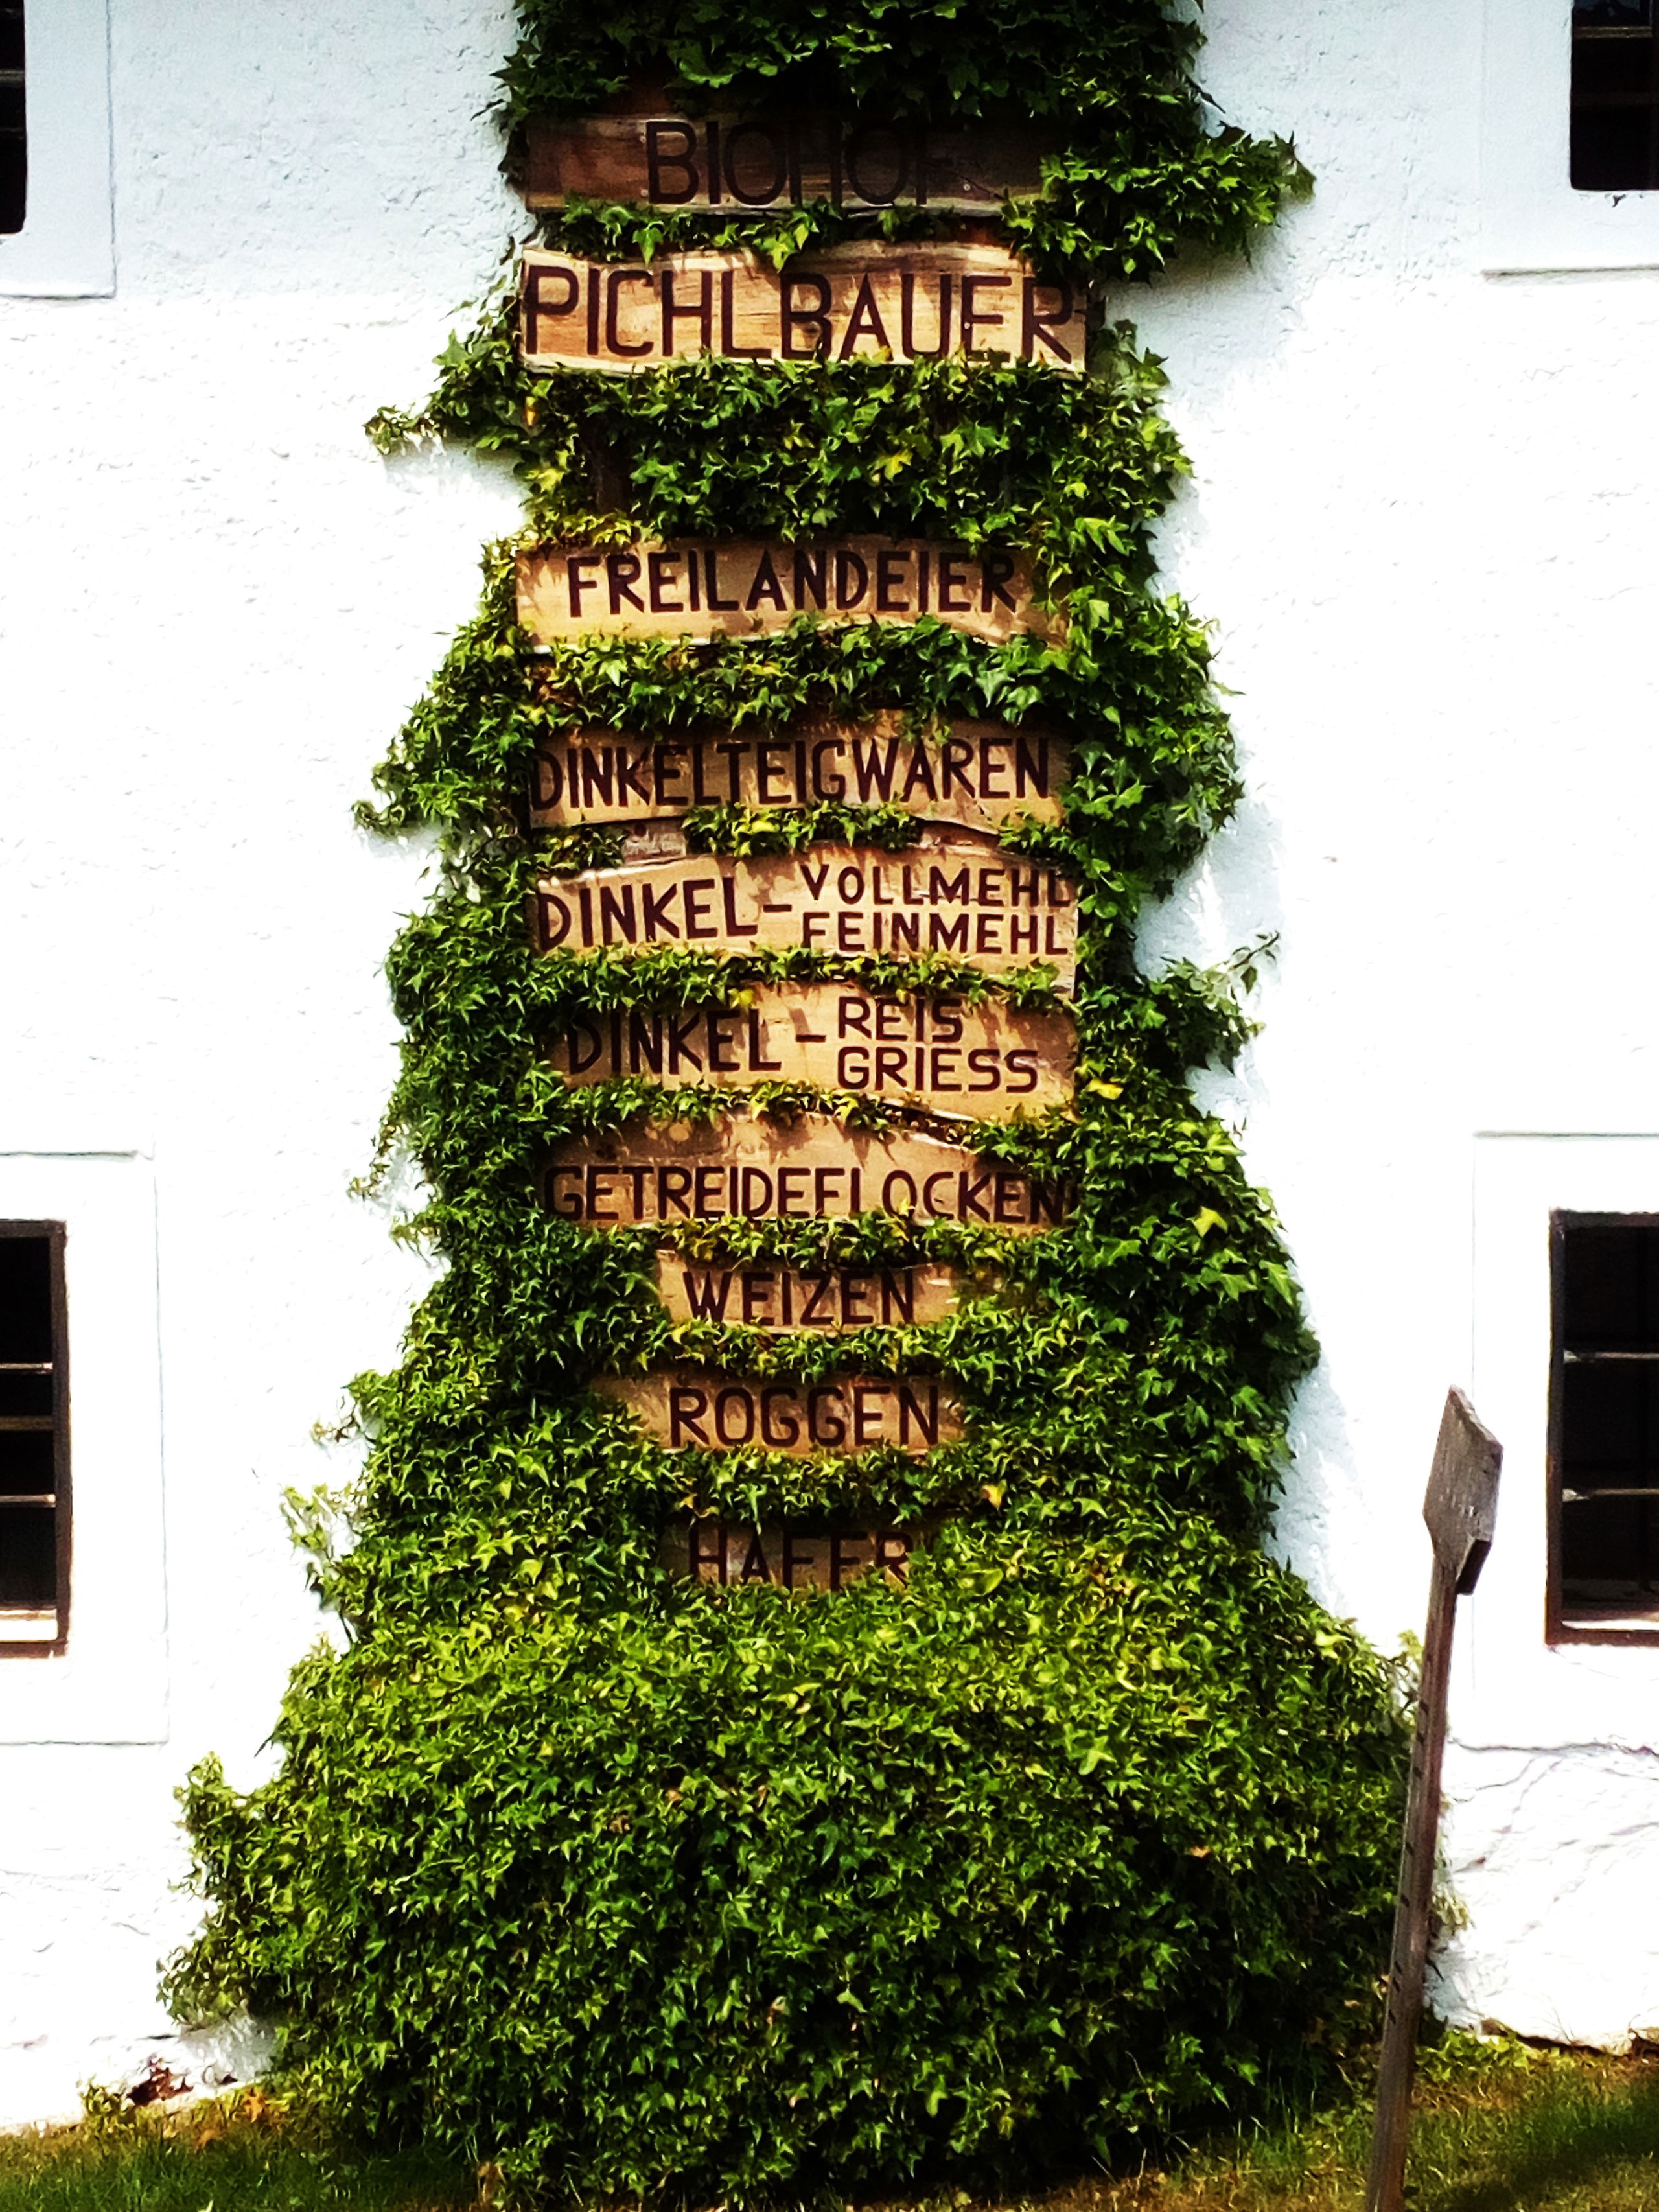 BIOHOF
PICHLBAUER
FREILANDEIER
DINKELTEIGWAREN
DINKEL- VOLLMEHL
FEINMEHL
DINKEL- REIS
GRIESS
GETREIDEFLOCKEN
WEIZEN
ROGGEN
HAFER